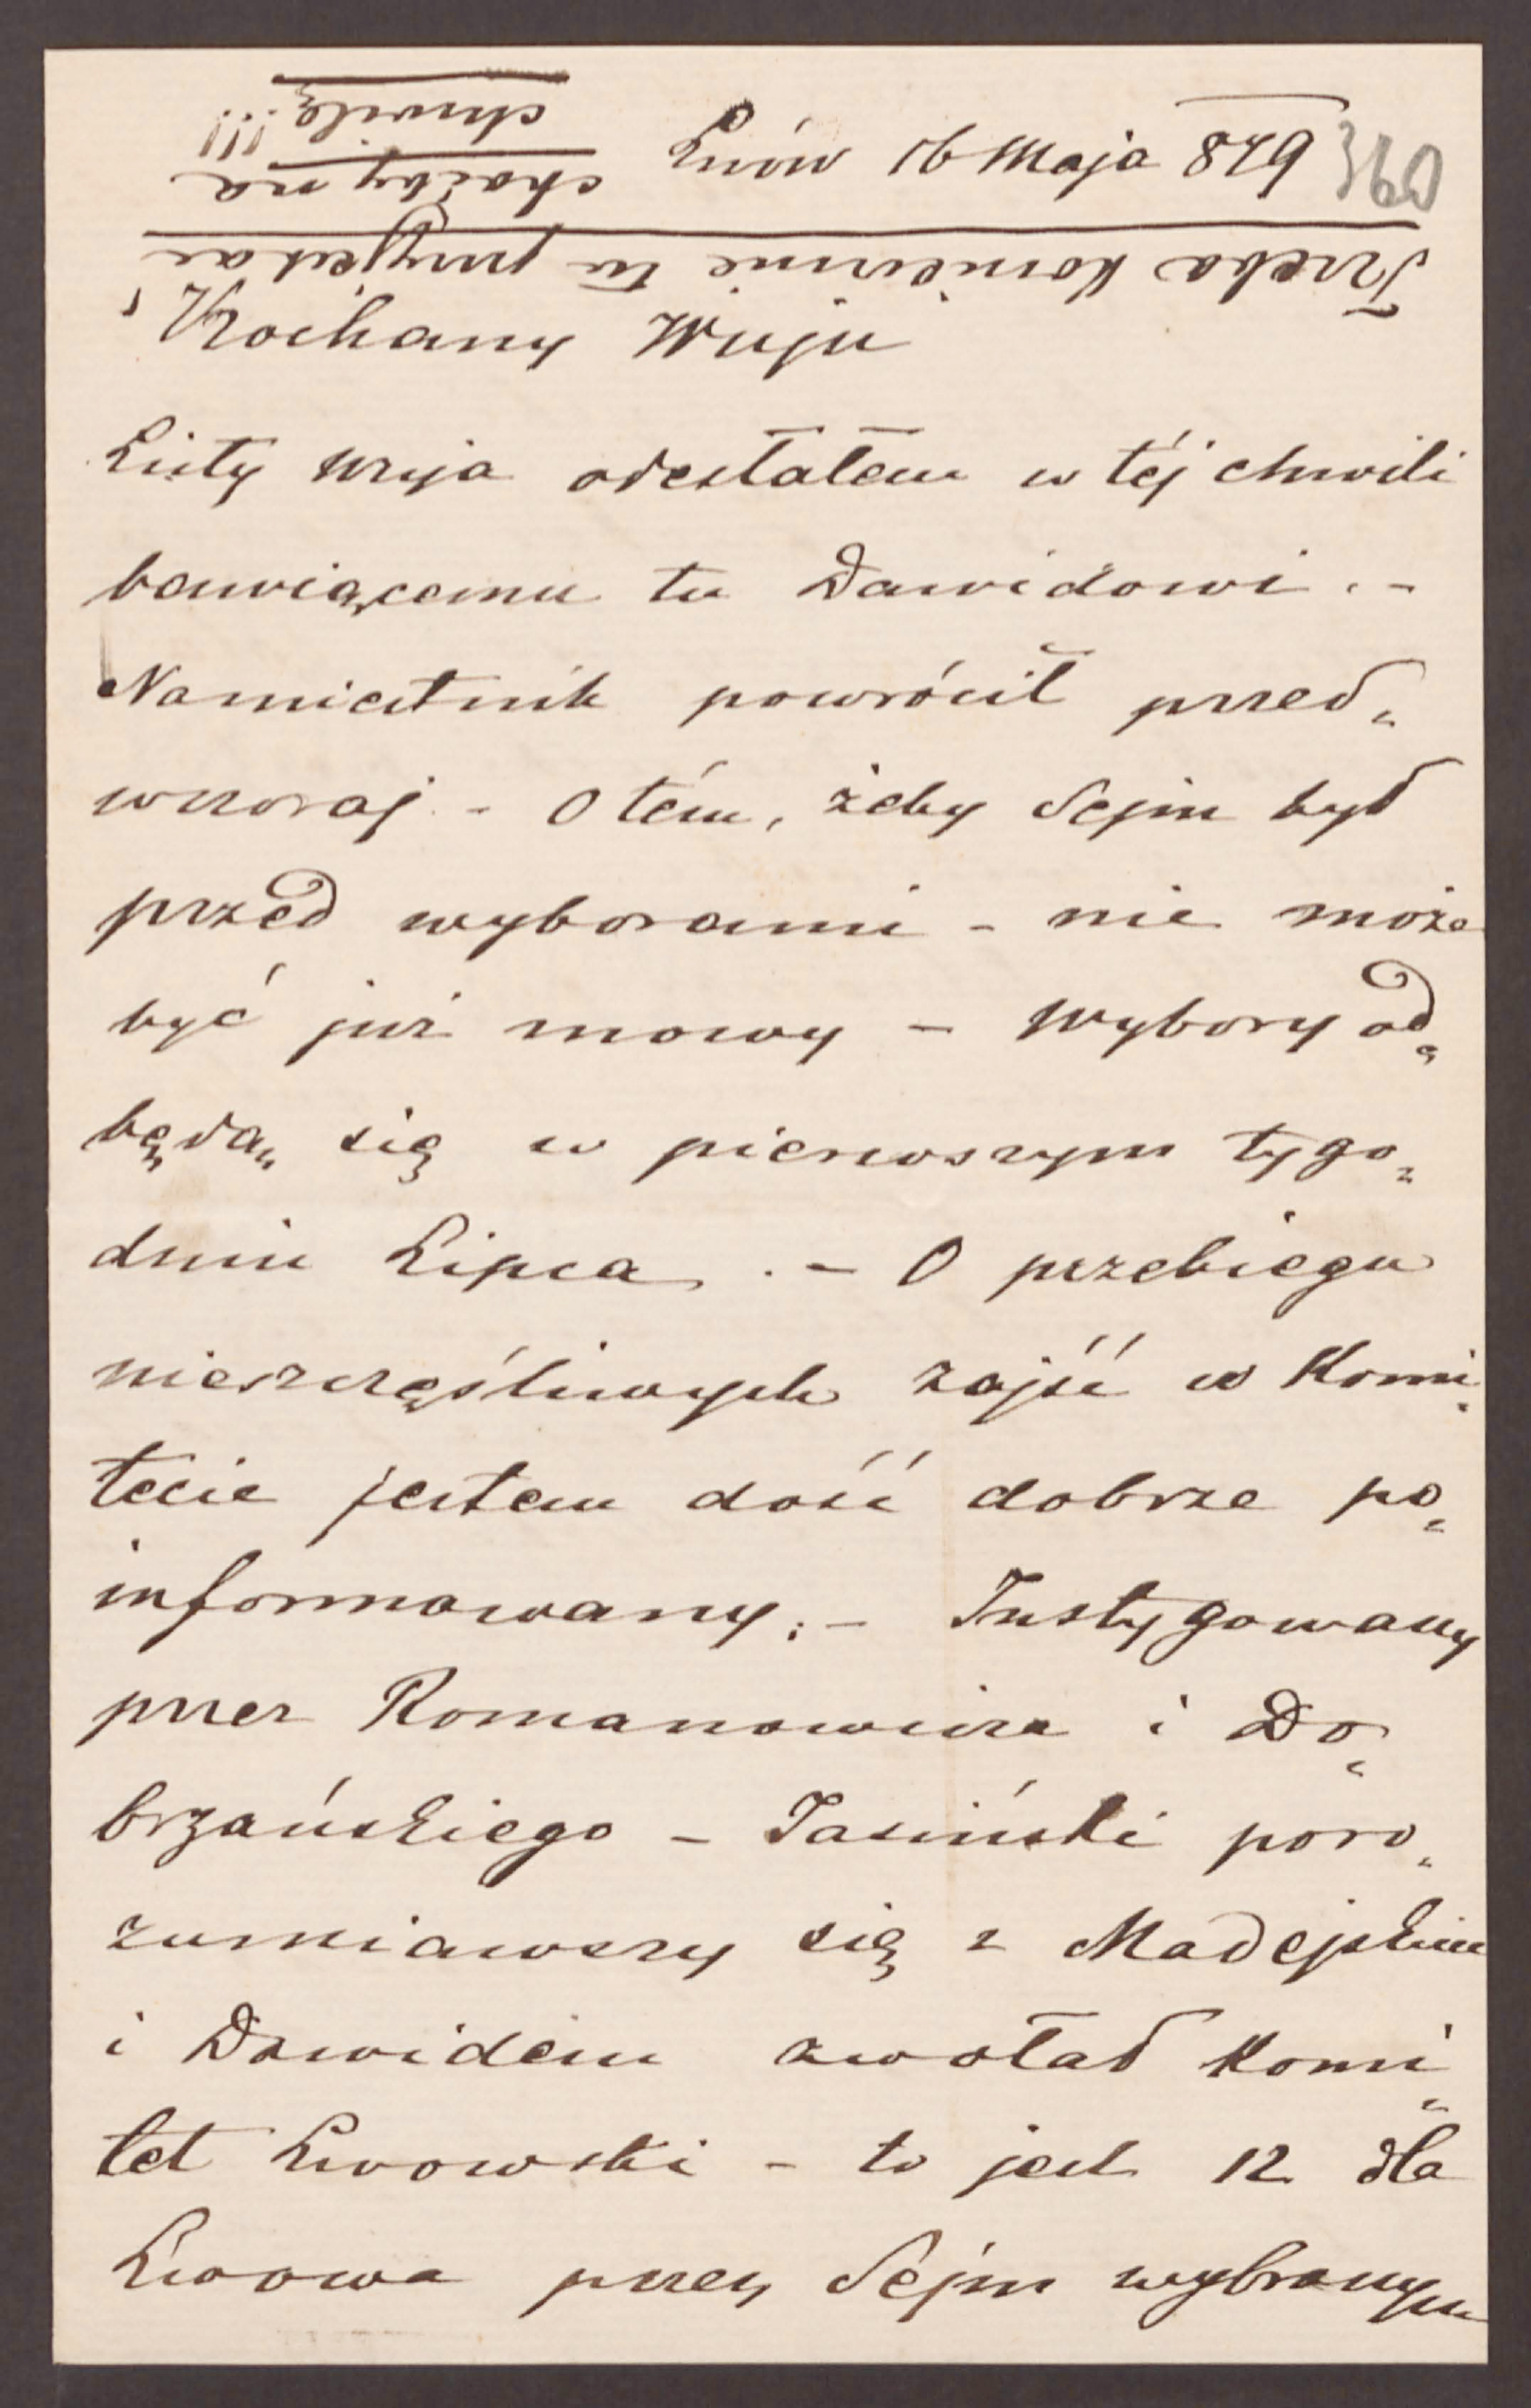 Lwów 16 Maja 879
360
Trzeba koniecznie tu przyjechać
choćby na
chwilę!!!
Kochany Wuju
Listy Wuja odesłałem w téj chwili
bawiącemu tu Dawidowi. –
Namiestnik powrócił przed„
wczoraj. – O tém, żeby Sejm był
przed wyborami – nie może
być już mowy – Wybory od„
będą się w pierwszym tygo„
dniu Lipca. – O przebiegu
nieszczęśliwych zajść w Komi„
tecie jestem dość dobrze po„
informowany. – Instygowany
przez Romanowicza i Do„
brzańskiego – Jasiński poro„
zumiawszy się z Madejskim
i Dawidem zwołał Komi„
tet Lwowski – to jest 12 dla
Lwowa przez Sejm wybranym